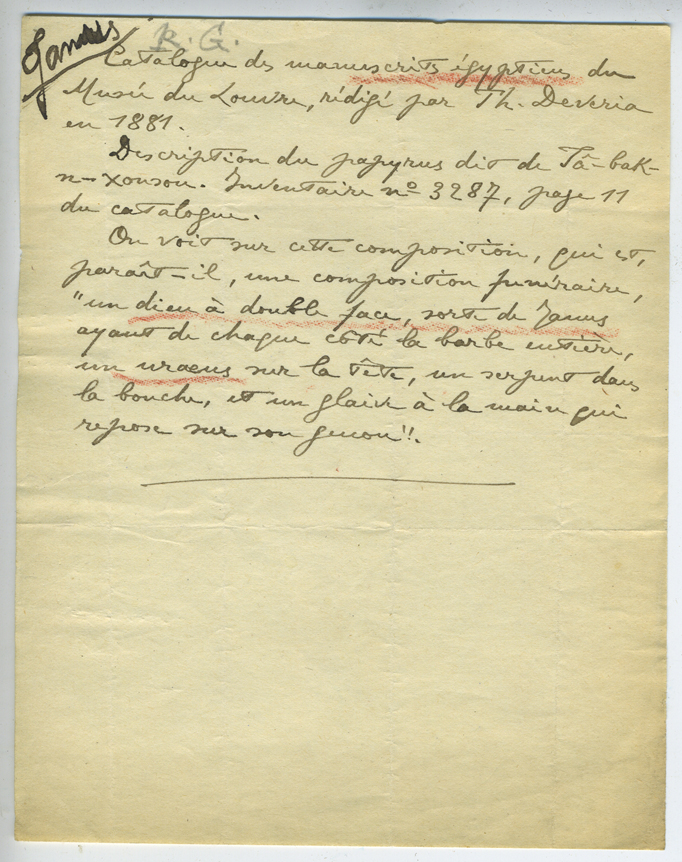 Janus
R. G.
Catalogue des manuscrits égyptiens du
Musée du Louvre, rédigé par Th. Deveria
en 1881.
Description du papyrus dit de Tâ-bak-
n-xonsou. Inventaire nº 3287, page 11
du catalogue.
On voit sur cette composition, qui est,
paraît-il, une composition funéraire,
"un dieu à double face, sorte de Janus
ayant de chaque côté la barbe entière,
un uraeus sur la tête, un serpent dans
la bouche, et un glaive à la main qui
repose sur son genou".